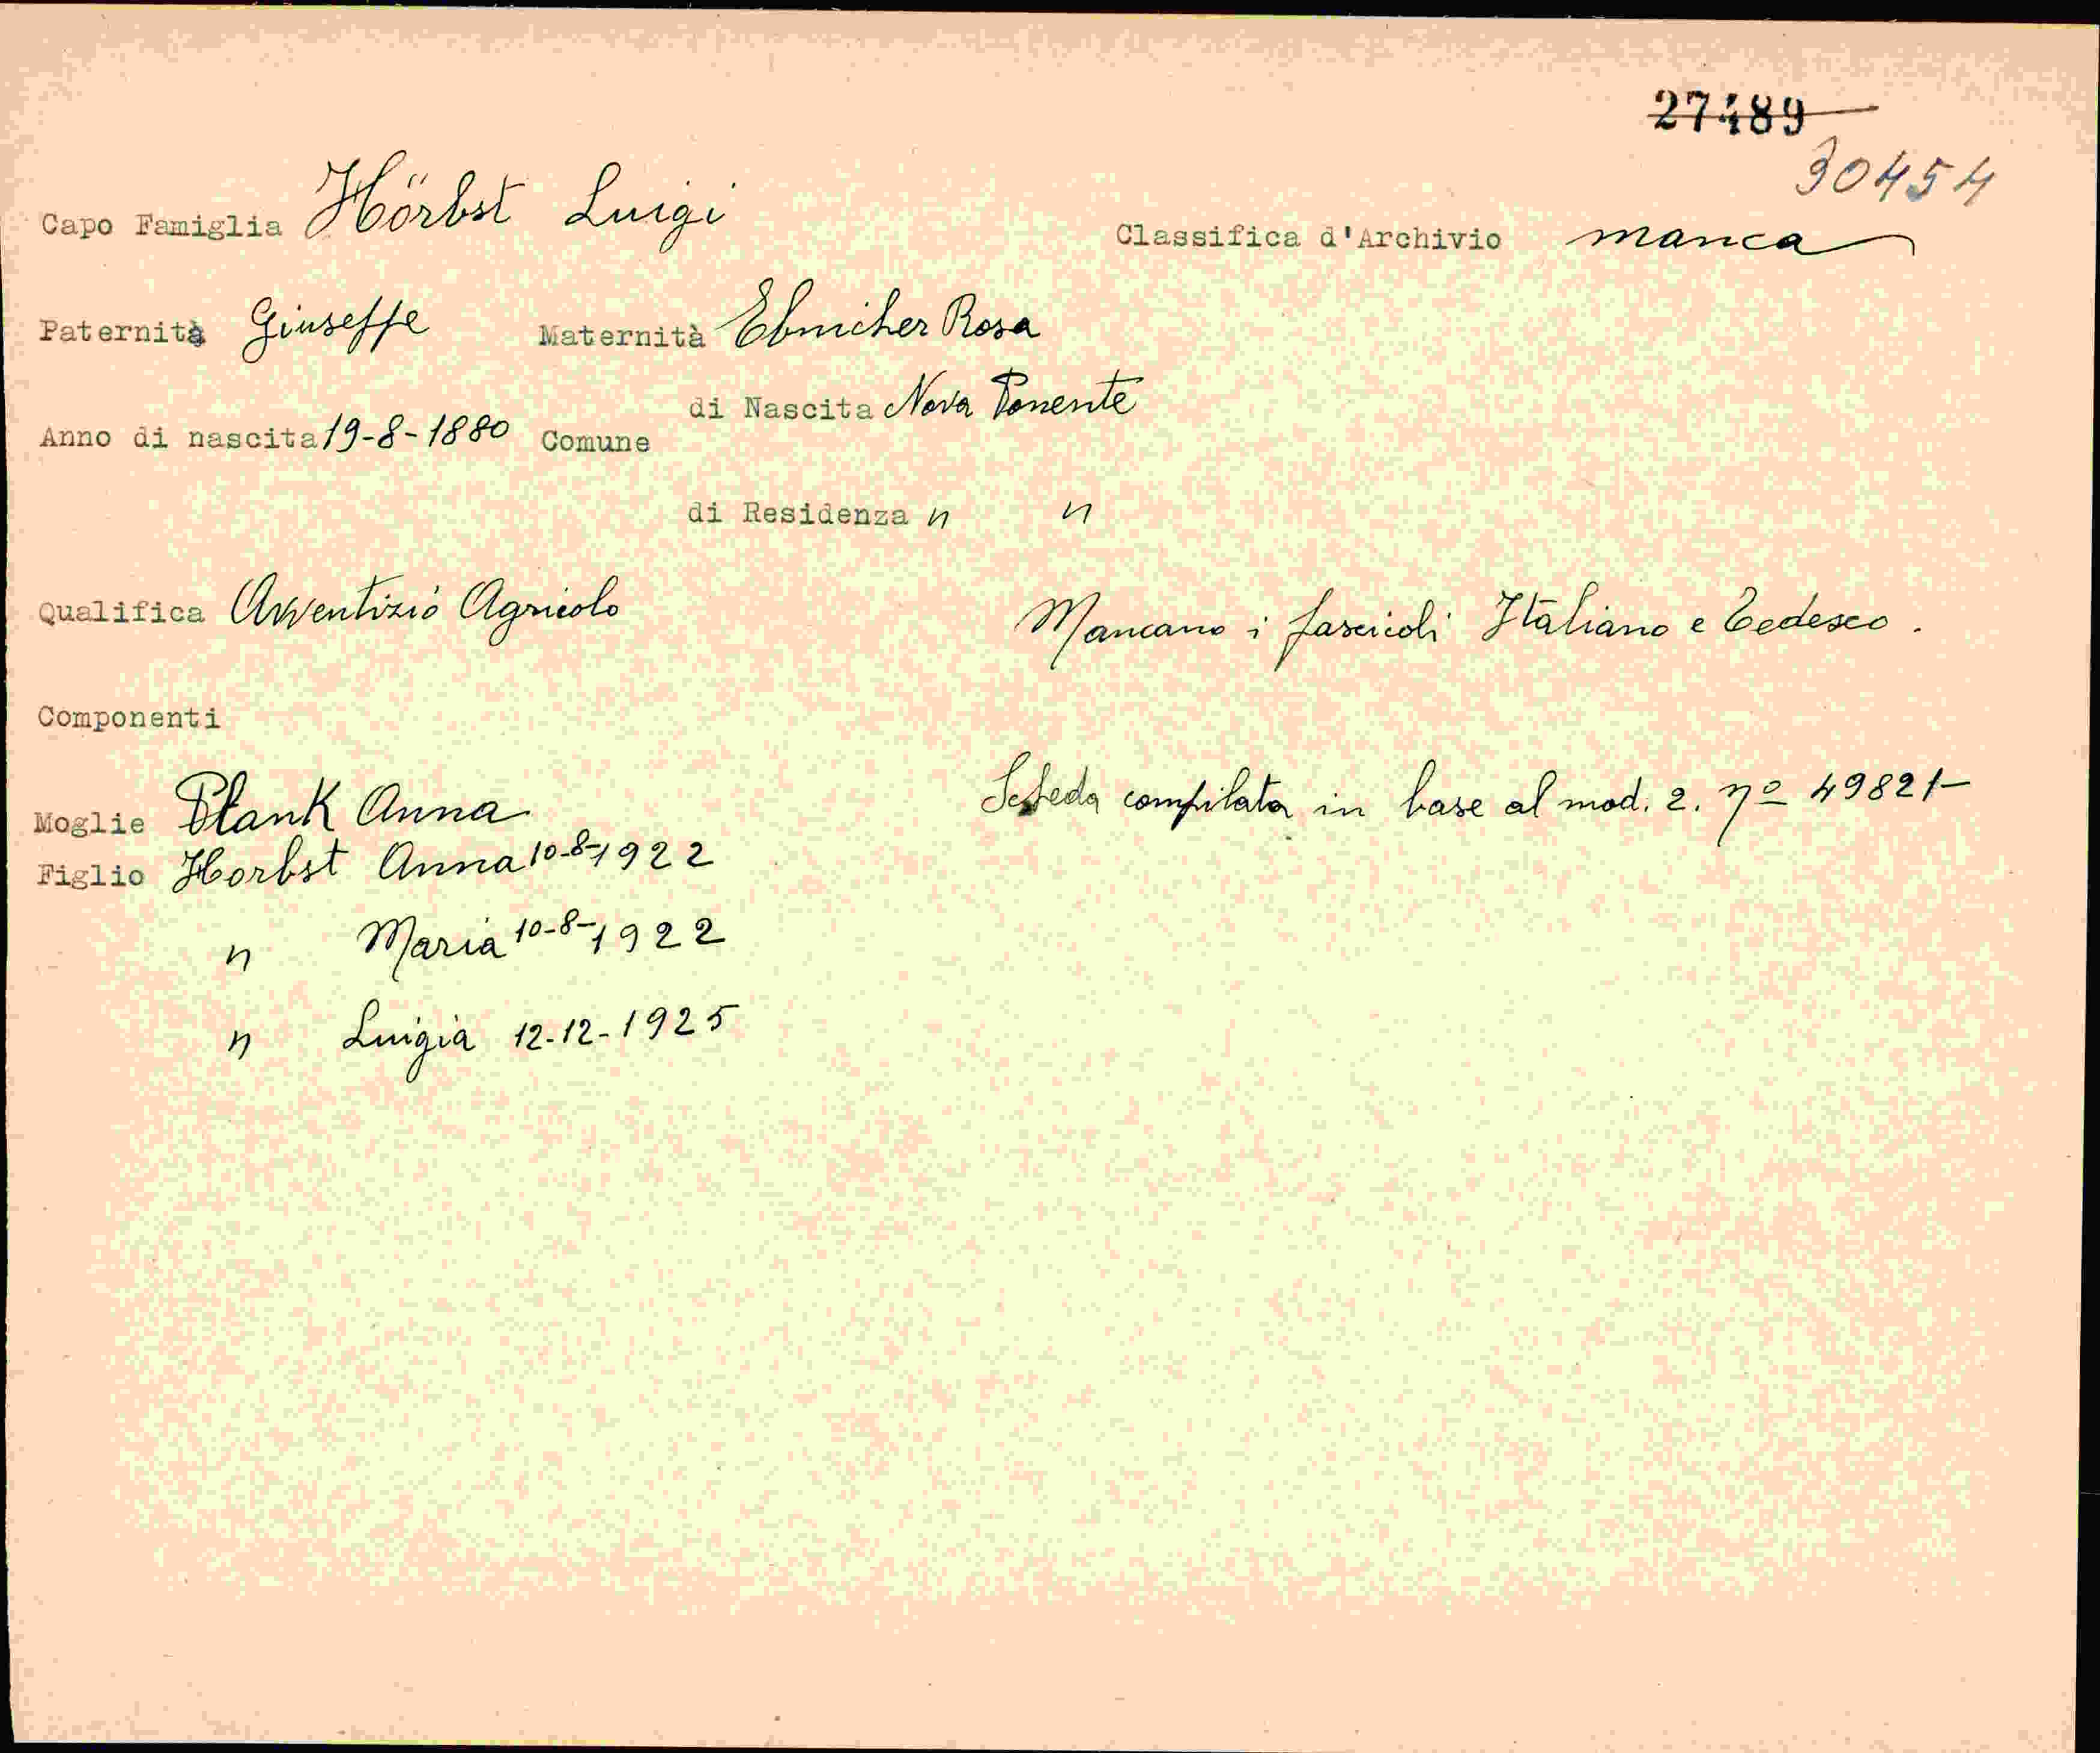 27489
30454
Capo Famiglia Hörbst Luigi
Classifica d'Archivio manca
Paternità Giuseppe Maternità Ebnicher Rosa
di Nascita Nova Ponente
Anno di nascita 19-8-1880 Comune
di Residenza " "
Qualifica Avventizio Agricolo
Mancano i fascicoli Italiano e Tedesco.
Componenti
Scheda compilata in base al mod. 2. nº 49821-
Moglie Plank Anna
Figlio Horbst Anna 10-8-1922
" Maria 10-8-1922
" Luigia 12-12-1925